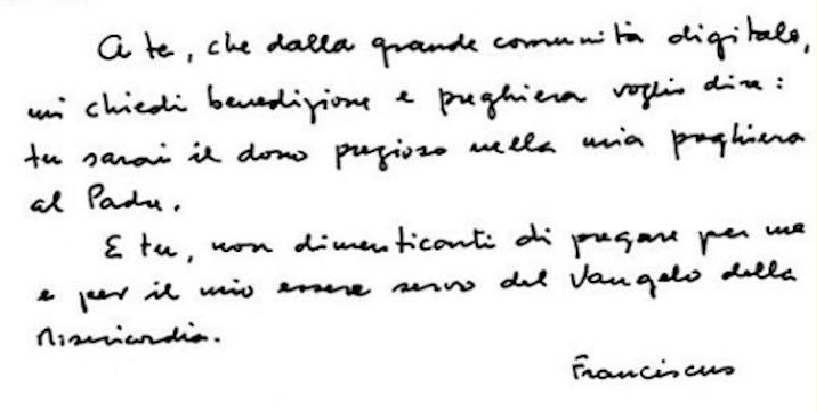 A te, che dalla grande comunità digitale,
mi chiedi benedizione e preghiera voglio dire:
tu sarai il dono prezioso nella mia preghiera
al Padre.
E tu, non dimenticarti di pregare per me
e per il mio essere servo del Vangelo della
Misericordia.
Franciscus